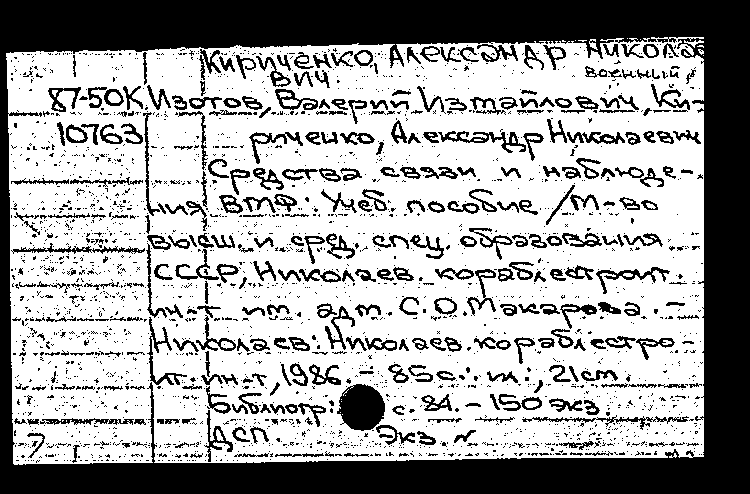 Кириченко, Александр Николае
вич.
военный
87-50К Изотов, Валерий Измайлович, Ки-
10763 риченко, Александр Николаевич
Средства связи и наблюде-
ния ВМФ: Учеб. пособие / М-во
высш. и сред. спец. образования
СССР, Николаев. кораблестроит.
ин-т им. адм. С.О.Макарова. -
Николаев: Николаев. кораблестро-
ит. ин-т, 1986. - 85с.: ил.; 21см.
Библиогр.: с. 84. - 150 экз.
ДСП. Экз. №